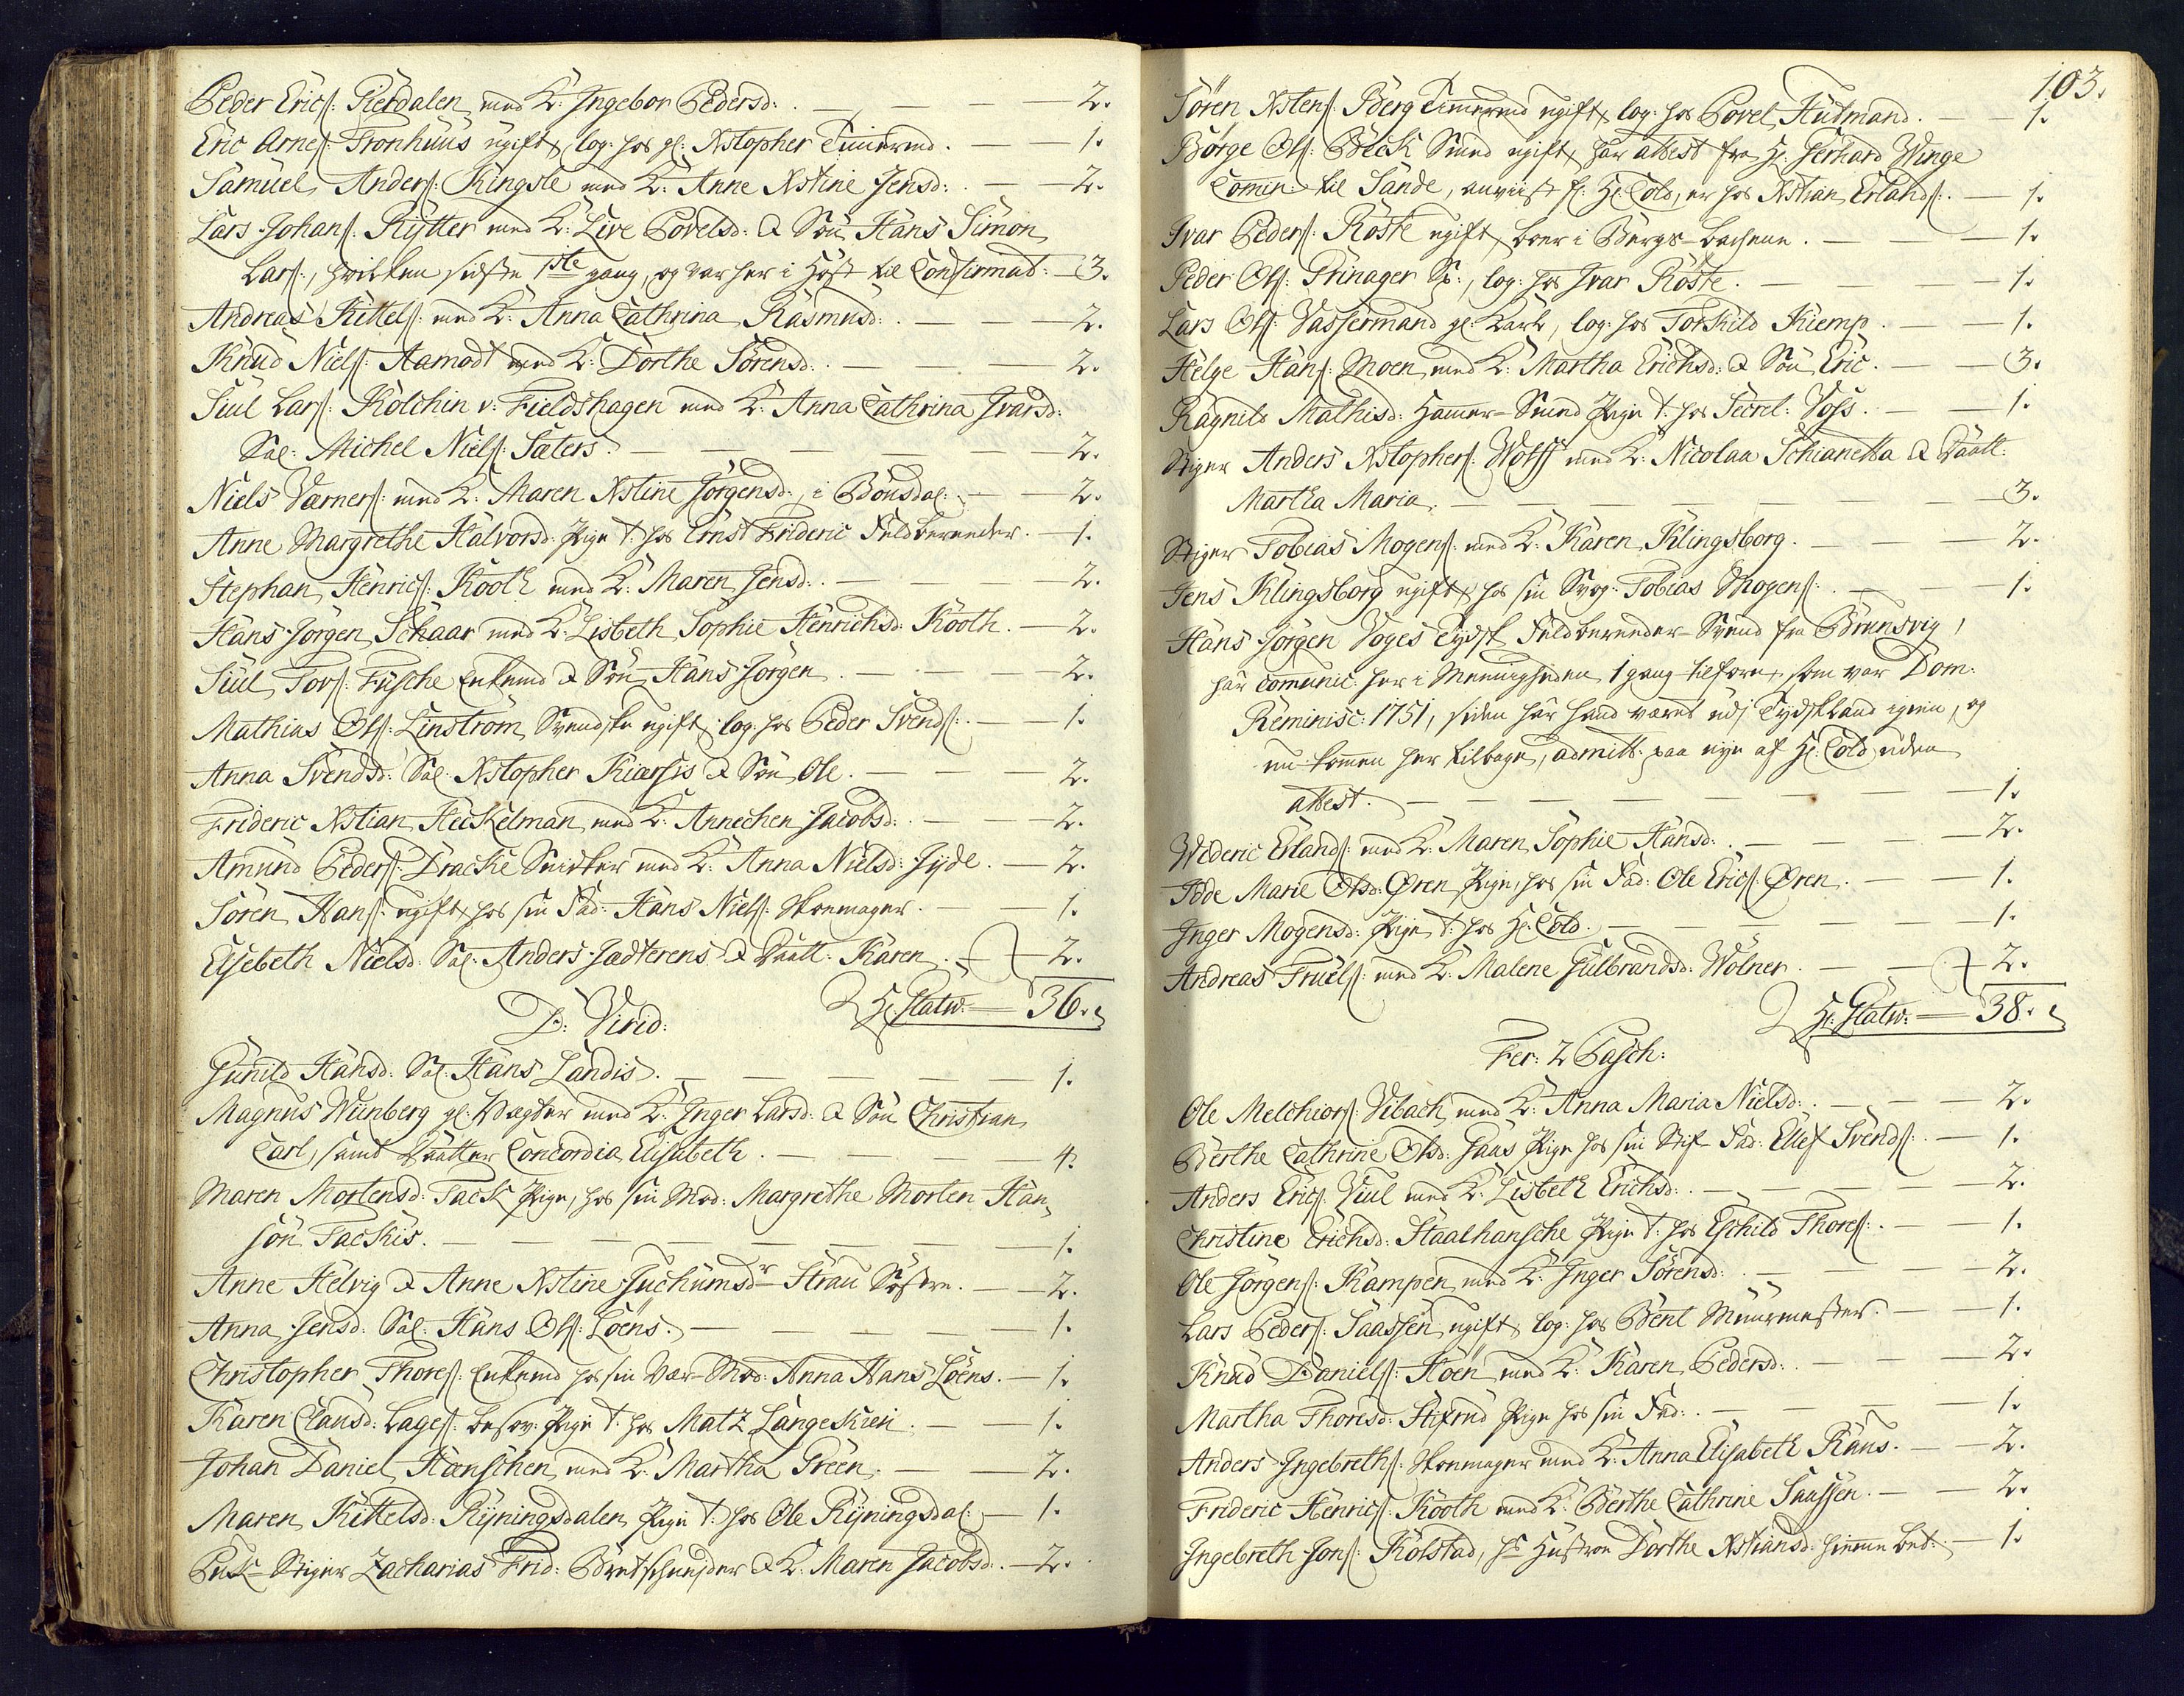 Peder Erics: Gierdalen med K: Ingebor Pedersd: . — — — 2.
Eric Arnes: Tronhuus ugift, log: hos gl: Xstopher Timermd. — — 1.
Samuel Anders: Kingsle med K: Anne Xstine Jensd: . — — 2.
Lars Johans: Rytter med K: Live Povelsd: & Sön Hans Simon
Lars:, hvilken sidste 1ste gang, og var her i Höst til Confirmat: — 3.
Andreas Kittels: med K: Anna Cathrina Rasmusd: . — — 2.
Knud Niels: Aamodt med K: Dorthe Sörensd: . — — — 2.
Siul Lars: Kolchin v: Fieldshagen med K: Anna Cathrina Ivarsd:
Sal: Michel Niels: Sæters. — — — — — 2.
Niels Varners: med K: Maren Xstine Jörgensd:, i Bönsdal: — — 2.
Anne Margrethe Halvorsd: Pige t: hos Ernst Frideric Fuldbereeder. — 1.
Stephan Henrics: Kooth med K: Maren Jensd: . — — — 2.
Hans Jörgen Schaar med K: Lisbeth Sophie Henrichsd: Kooth. — 2.
Siul Tors: Fusche Enkemd & Sön Hans Jörgen. — — — 2.
Mathias Ols: Linström Svendske ugift, log: hos Peder Svends: . — 1.
Anna Svendsd: Sal: Xstopher Kiærsis & Sön Ole. — — — 2.
Frideric Xstian Heckelman med K: Annechen Jacobsd: . — — 2.
Amund Peders: Dracke Snidker med K: Anna Nielsd: Jyde. — 2.
Sören Hans: ugift, hos sin Fad: Hans Niels: Skoemager. — — 1.
Elsebeth Nielsd: Sal: Anders Jædterens & Daatt: Karen. — 2.
Hr: Glatv: — 36.
D: Virid:
Gunild Hansd: Sal: Hans Landis. — — — — — 1.
Magnus Wiinberg gl: Vægter med K: Inger Larsd: & Sön Christian
Carl, samt Daatter Concordia Elisabeth. — — — — 4.
Maren Mortensd: Tack Pige, hos sin Mod: Margrethe Morten Han-
sön Tackis. — — — — — — — 1.
Anne Helvig & Anne Xstine Juchumsdr Strau Söstre. — — 2.
Anna Jensd: Sal: Hans Ols: Löens. — — — — — 1.
Christopher Thores: Enkemd hos sin Vær-Mod: Anna Hans Löens. — 1.
Karen Clausd: Lages: besov: Pige t: hos Matz Langeskien. — — 1.
Johan Daniel Hoenschen med K: Martha Green. — — — 2.
Maren Kittelsd: Ryningsdalen Pige t: hos Ole Ryningsdal: — 1.
Puk-Stiger Zacharias Frid: Bretschneyder & K: Maren Jacobsd: . — 2.
103.
Sören Xstens: Berg Timermd ugift, log: hos Povel Hutmand. — — 1.
Börge Ols: Beck Smed ugift, har attest fra Hr: Gerhard Winge
Comin: til Sande, anviist fr: Hr: Cold, er hos Xstian Erlands: . — 1.
Ivar Peders: Röste ugift, boer i Bergs-backene. — — — 1.
Peder Ols: Prinager Sp:, log: hos Ivar Röste. — — — 1.
Lars Ols: Vassermand gl: Karl, log: hos Torkild Kiemp. — — 1.
Helge Hans: Moen med K: Martha Erichsd: & Sön Eric. — — 3.
Ragnild Mathisd: Hammer-Smed Pige t: hos Secret: Voss. — — 1.
Stiger Anders Xstophers: Wolff med K: Nicolaa Schianetta & Daatt:
Martha Maria. — — — — — — — 3.
Stiger Tobias Mogens: med K: Karen Klingsborg. — — — 2.
Jens Klingsborg ugift, hos sin Svog: Tobias Mogens: . — — 1.
Hans Jörgen Voges Tydsk Fuldbereeder-Svend fra Brunsvig,
har comunic: her i Meenigheden 1 gang tilforn, som var Dom:
Reminisc: 1751, siden har hand været udj Tydskland igien, og
nu kommen her tilbage, admitt: paa nye af Hr: Cold uden
attest. — — — — — — — 1.
Wederic Erlands: med K: Maren Sophie Hansd: . — — — 2.
Tode Marie Olsd: Øren Pige, hos sin Fad: Ole Erics: Øren. — — 1.
Inger Mogensd: Pige t: hos Hr: Cold. — — — — — 1.
Andreas Truels: med K: Malene Gulbrandsd: Wölner. — — 2.
Hr: Glatv: — 38.
Fer: 2 Pasch:
Ole Melchiors: Vibach med K: Anna Maria Nielsd: . — — — 2.
Berthe Cathrine Olsd: Haus Pige hos sin Stif-Fad: Ellef Svends: . — 1.
Anders Erics: Viul med K: Lisbeth Erichsd: . — — — — 2.
Christine Erichsd: Staalhansche Pige t: hos Eschild Thores: . — — 1.
Ole Jörgens: Kampen med K: Inger Sörensd: . — — — 2.
Lars Peders: Saassen ugift, log: hos Bent Muurmester. — — 1.
Knud Daniels: Hoen med K: Karen Pedersd: . — — — 2.
Martha Thoresd: Stixrud Pige hos sin Fad: . — — — — 1.
Anders Ingebreths: Skoemager med K: Anna Elisabeth Raus. — — 2.
Frideric Henrics: Kooth med K: Berthe Cathrine Saassen. — — 2.
Ingebreth Jons: Kolstad, hs Hustroe Dorthe Xstiansd: hiemme bet: . — 1.